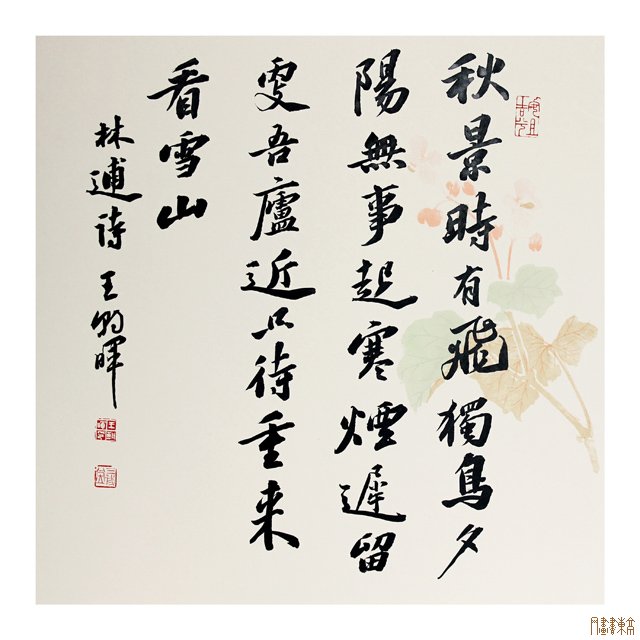 秋景時有飛獨鳥夕
陽無事起寒煙遲留
吾廬近只待重来
看雪山
林逋诗 王暉